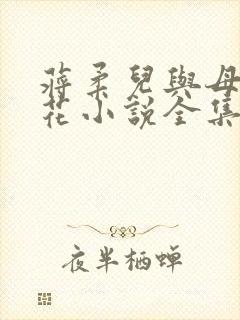 蔣柔兒與母
花小說全集
夜半栖蝉